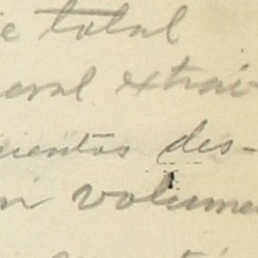 e total
eral extraí-
cientos des-
n volumen